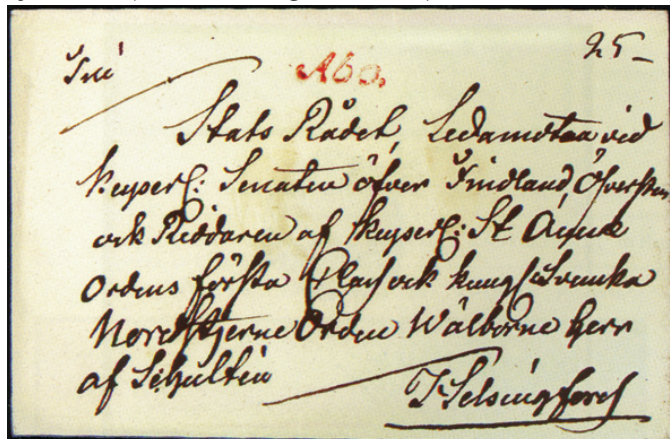 Frei 25_
Åbo,
Stats Rådet, Ledamoten vid
Keyserl: Senaten öfver Finland, Öfversten
och Riddaren af Keyserl: St Annæ
Ordens första Class och Kungl: Svenska
Nordstjerne Orden Wälborne Herr
af Schultén
Helsingfors